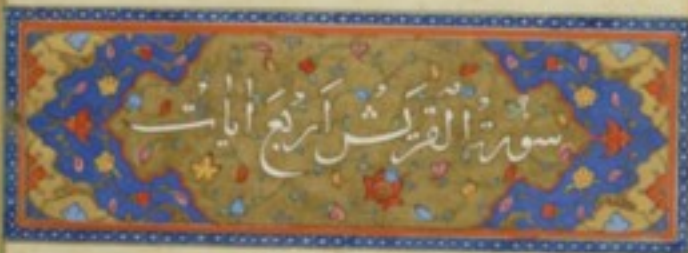 سورة القریش اربع ایات